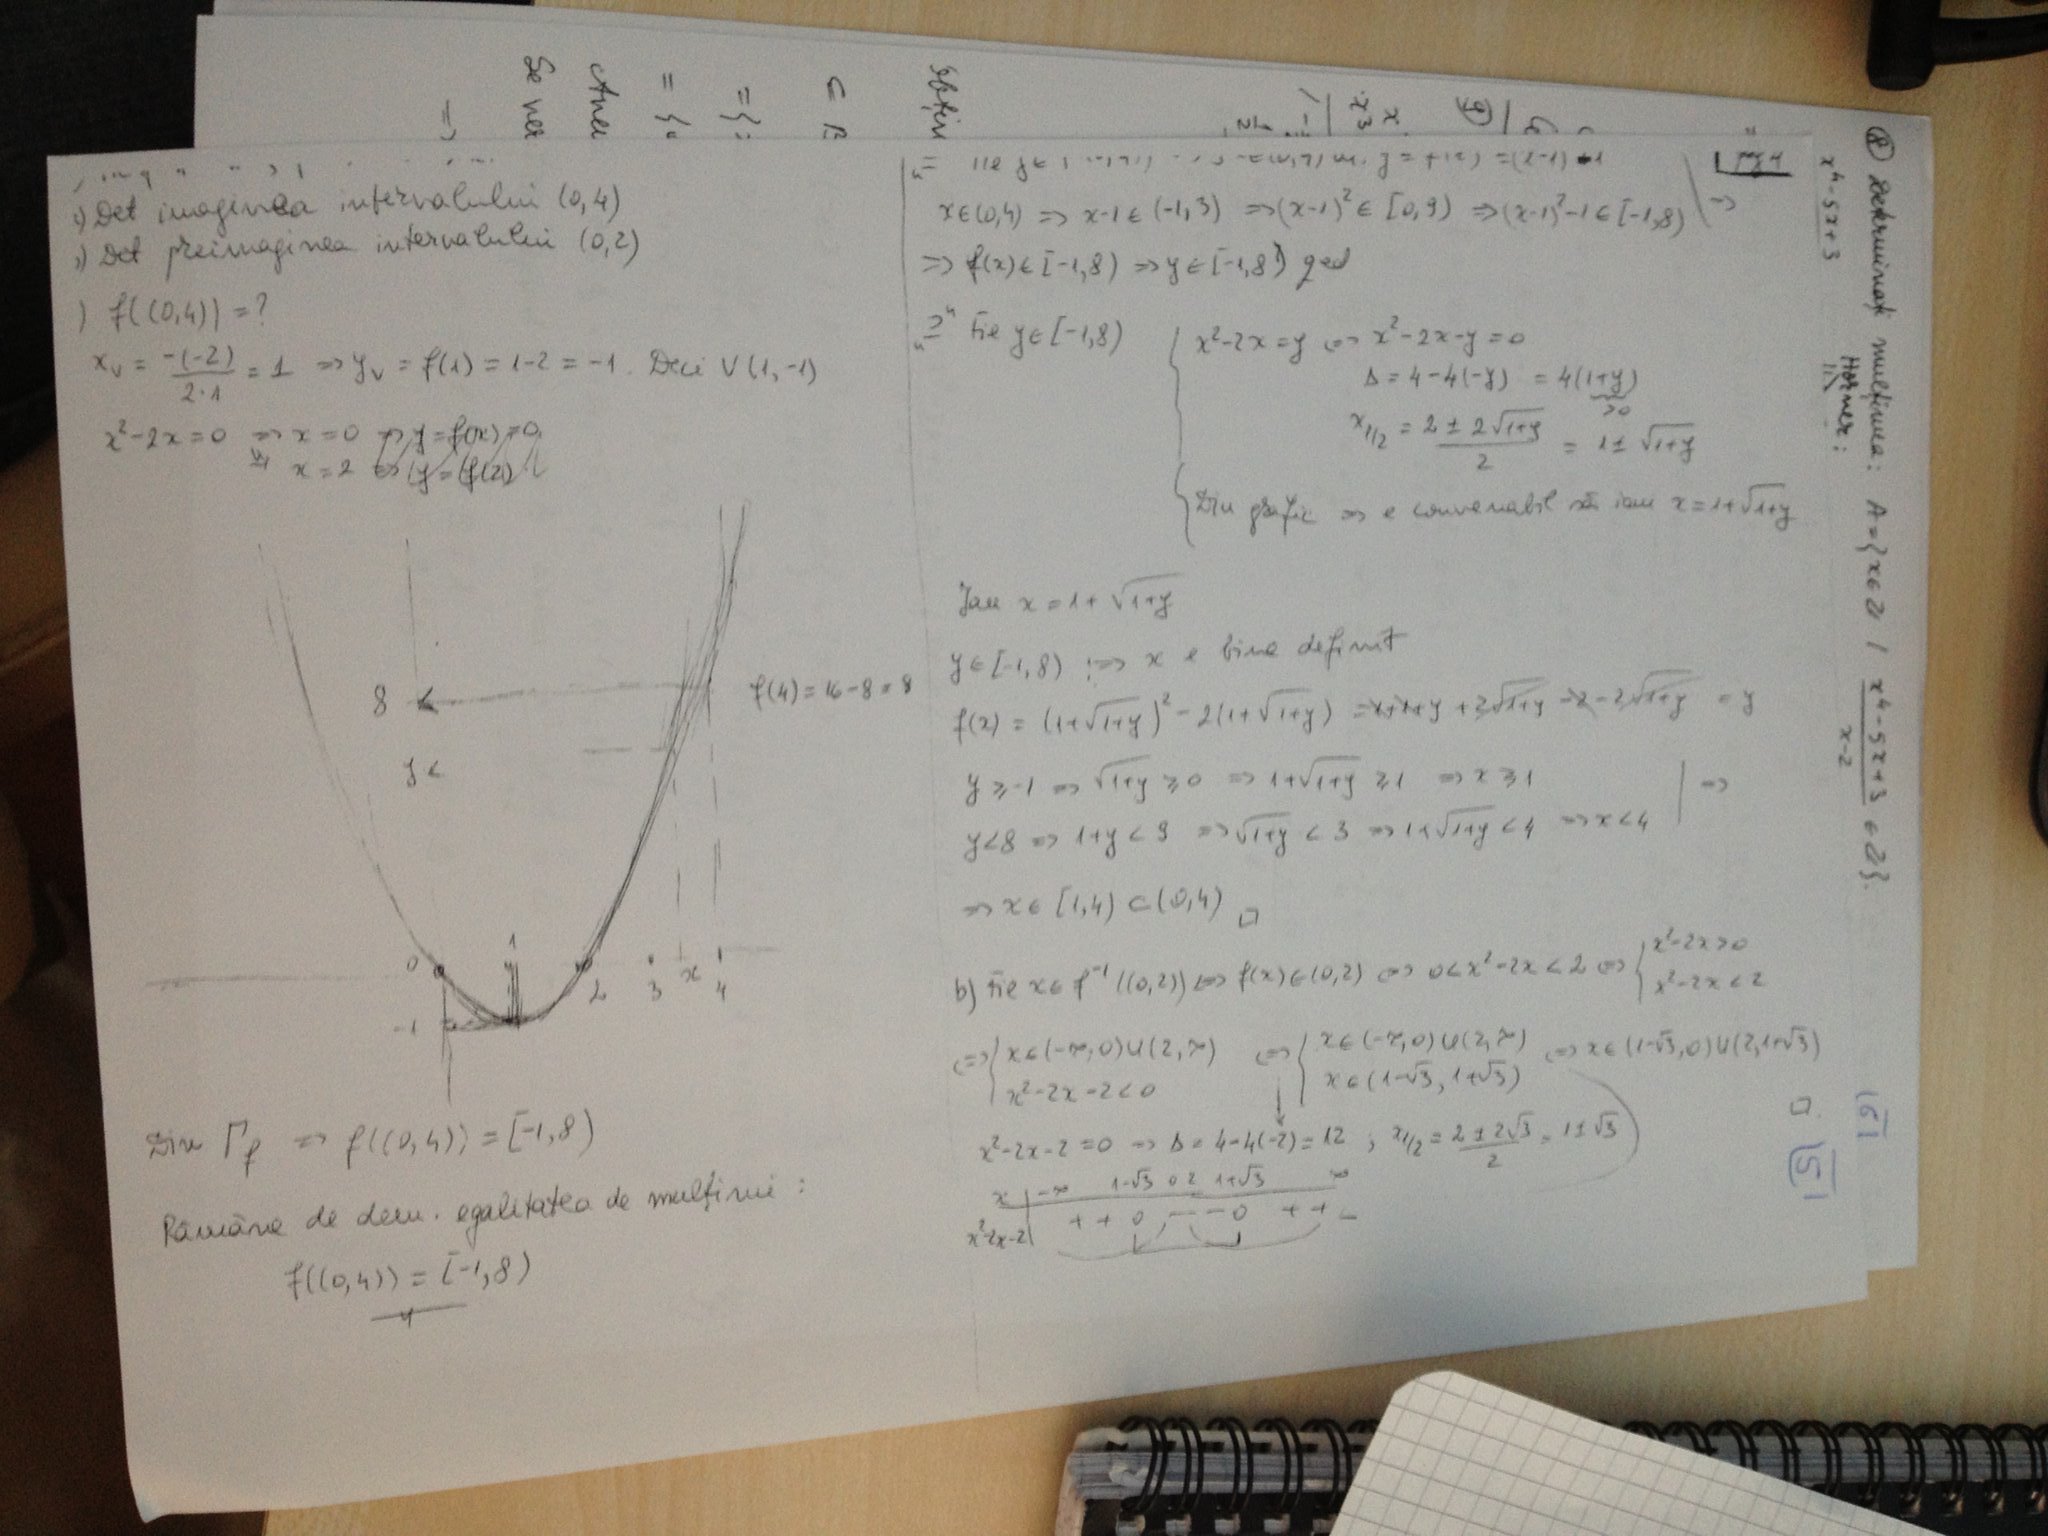 Det imaginea intervalului (0,4)
Det preimaginea intervalului (0,2)
) f((0,4)) = ?
x_v = -(-2)/2·1 = 1 => y_v = f(1) = 1-2 = -1. Deci V(1,-1)
x²-2x=0 => x=0 => y=f(x)=0
x=2 => y=f(2)
8
f(4)=16-8=8
y
0
1
2
3
x
4
-1
Din Γf => f((0,4)) = [-1,8)
Rămâne de dem. egalitatea de mulțimi:
f((0,4)) = [-1,8)
x∈(0,4) => x-1∈(-1,3) => (x-1)²∈[0,9) => (x-1)²-1∈[-1,8)
=> f(x)∈[-1,8) => y∈[-1,8) qed
"⊇" Fie y∈[-1,8)
x²-2x=y <=> x²-2x-y=0
Δ=4-4(-y) = 4(1+y)
≥0
x1/2 = (2±2√(1+y))/2 = 1±√(1+y)
Din grafic => e convenabil să iau x=1+√(1+y)
Iau x=1+√(1+y)
y∈[-1,8) => x e bine definit
f(x) = (1+√(1+y))² - 2(1+√(1+y)) = 1+1+y+2√(1+y) -2-2√(1+y) = y
y≥-1 => √(1+y) ≥0 => 1+√(1+y) ≥1 => x≥1
y<8 => 1+y<9 => √(1+y) <3 => 1+√(1+y) <4 => x<4
=>
=> x∈[1,4)⊂(0,4) □
b) Fie x∈f⁻¹((0,2)) <=> f(x)∈(0,2) <=> 0<x²-2x<2 <=> { x²-2x>0
x²-2x<2
<=> { x∈(-∞,0)∪(2,∞) <=> { x∈(-∞,0)∪(2,∞) <=> x∈(1-√3,0)∪(2,1+√3)
x²-2x-2<0 x∈(1-√3,1+√3)
□
x²-2x-2=0 => Δ=4-4(-2)=12 ; x1/2 = (2±2√3)/2 = 1±√3
x | -∞ 1-√3 0 2 1+√3 ∞
x²-2x-2 | + + 0 - - 0 + +
⑧ Determinați mulțimea: A={x∈ℤ | (x⁴-5x+3)/(x-2) ∈ℤ}.
Horner:
x⁴-5x+3
⑨
x³
Obțin
⊂ R
= {
= {
Atu
Se ve
=>